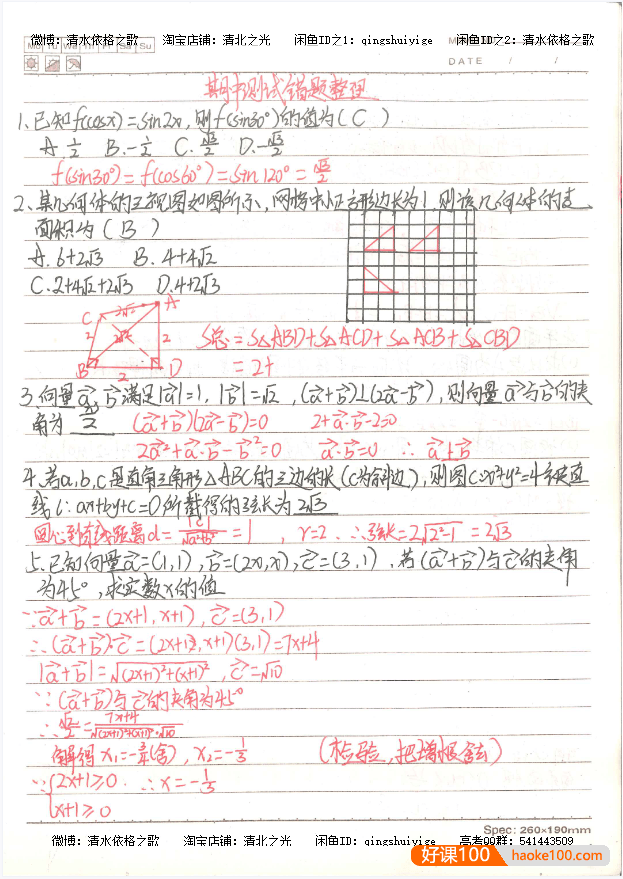 微博：清水依格之歌 淘宝店铺：清北之光 闲鱼ID之1：qingshuiyige 闲鱼ID之2：清水依格之歌
Mo Tu We Th Fr Sa Su
DATE / /
期中测试错题整理
1.已知f(cosx)=sin2x,则f(sin30°)的值为( C )
A.1/2 B.-1/2 C.√3/2 D.-√3/2
f(sin30°)=f(cos60°)=sin120°=√3/2
2.某几何体的三视图如图所示,网格中小正方形边长为1,则该几何体的表
面积为( B )
A.6+2√3 B.4+4√2
C.2+4√2+2√3 D.4+2√3
C 2√2 A
2 2√2 2
B 2 D
S总=S△ABD+S△ACD+S△ACB+S△CBD
=2+
3.向量a,b满足|a|=1,|b|=√2,(a+b)⊥(2a-b),则向量a与b的夹
角为 π/2 (a+b)(2a-b)=0 2+a·b-2=0
2a²+a·b-b²=0 a·b=0 ∴a⊥b
4.若a,b,c是直角三角形△ABC的三边的长(c为斜边),则圆C:x²+y²=4被直
线l:ax+by+c=0所截得的弦长为2√3
圆心到直线距离d=|c|/√(a²+b²)=1,r=2.∴弦长=2√(2²-1)=2√3
5.已知向量a=(1,1),b=(2x,x),c=(3,1),若(a+b)与c的夹角
为45°,求实数x的值
∵a+b=(2x+1,x+1),c=(3,1)
∴(a+b)·c=(2x+1,x+1)(3,1)=7x+4
|a+b|=√((2x+1)²+(x+1)²),c=√10
∵(a+b)与c的夹角为45°
∴√2/2=(7x+4)/(√((2x+1)²+(x+1)²)·√10)
解得x₁=(舍),x₂=-1/3 (检验,把增根舍去)
∵{2x+1≥0 ∴x=-1/3
x+1≥0
Spec: 260×190mm
微博：清水依格之歌 淘宝店铺：清北之光 闲鱼ID：qingshuiyige 高考QQ群：541443509
好课100 haoke100.com